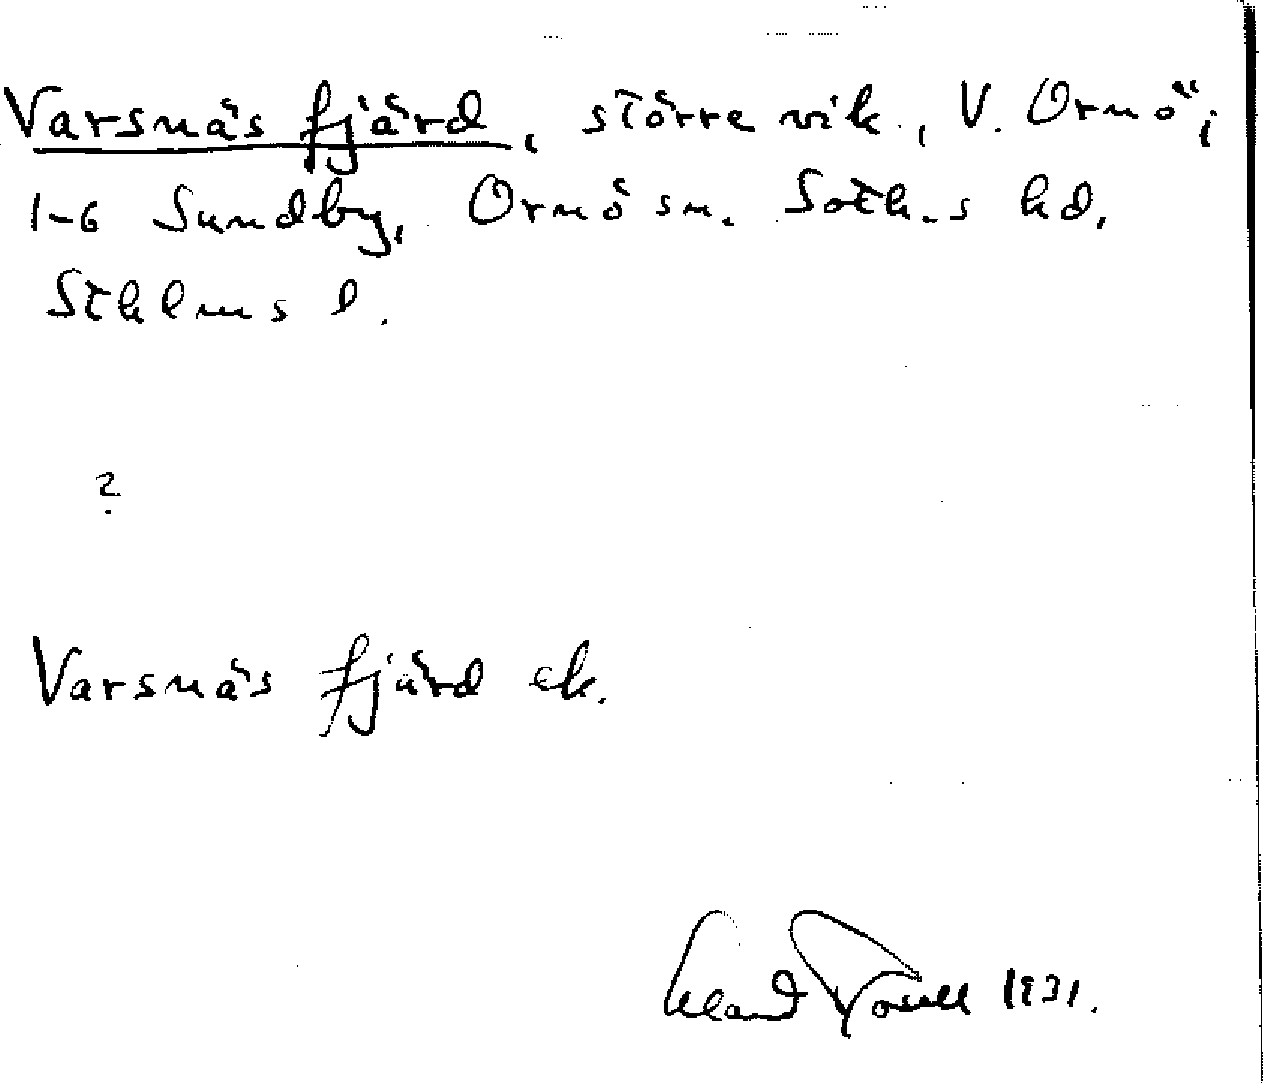 Varsnäs fjärd, större vik, V. Ornö,
1-6 Sundby, Ornö sn. Soth.s hd,
Sthlms l.
?
Varsnäs fjärd ek.
1931.